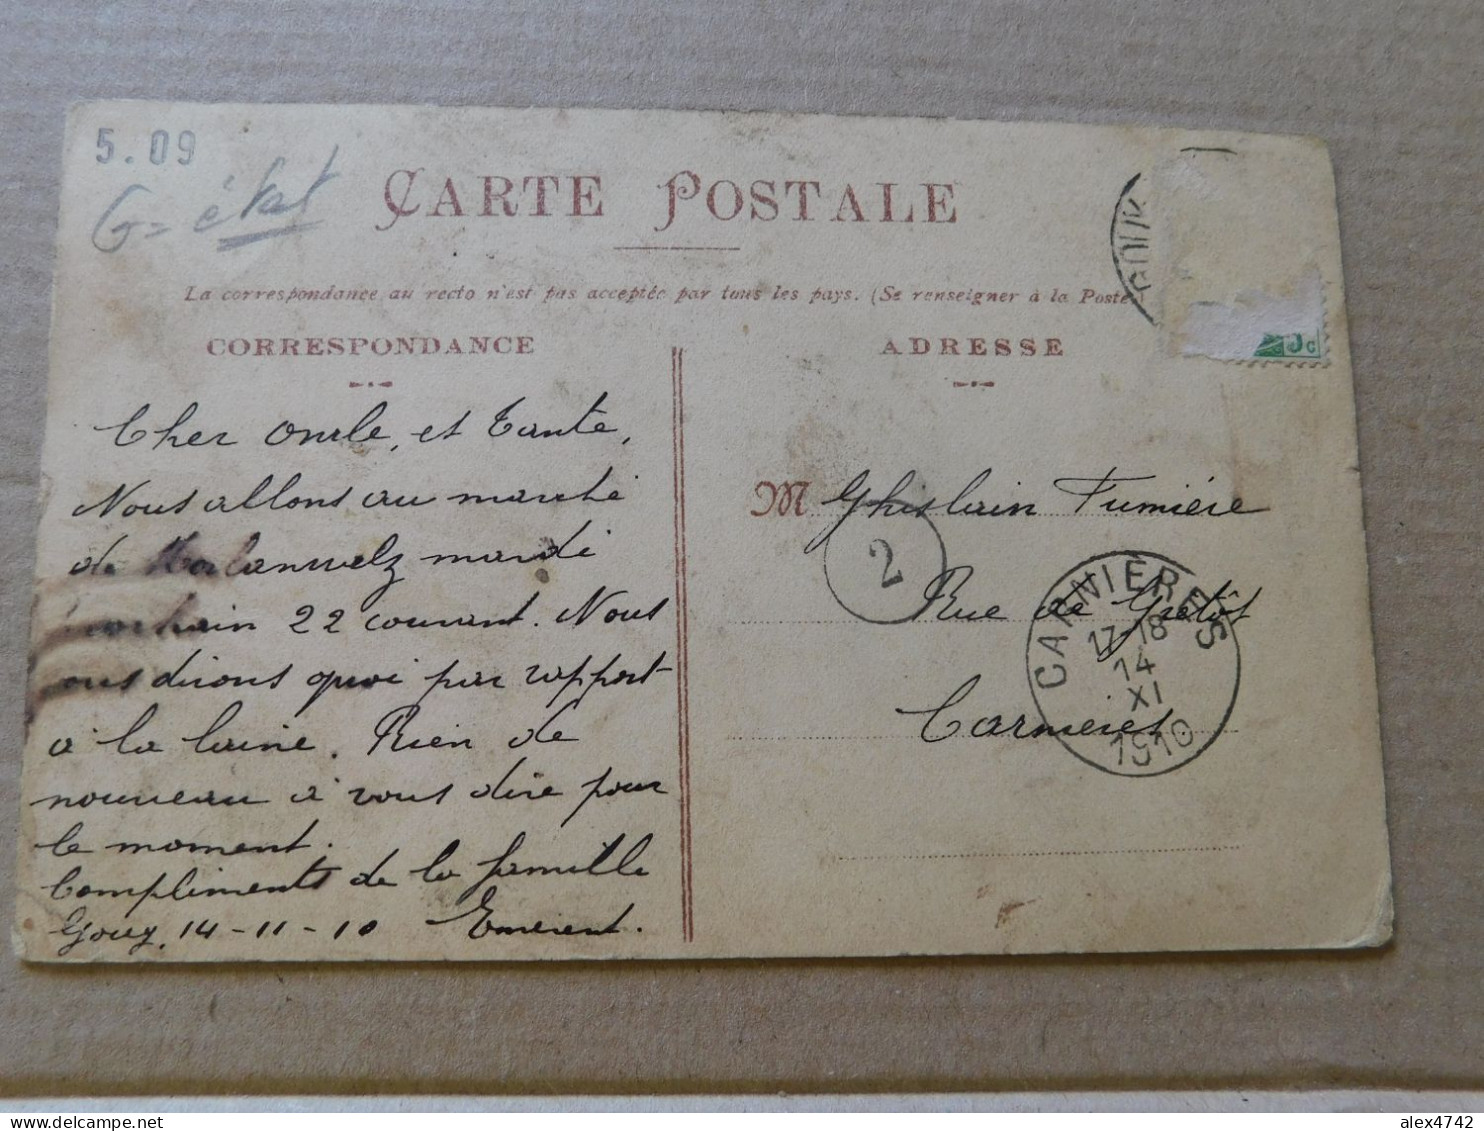 5.09
G = état
CARTE POSTALE
La correspondance au recto n'est pas acceptée par tous les pays. (Se renseigner à la Poste
CORRESPONDANCE
ADRESSE
5c
Cher Oncle, et Tante,
Nous allons au marché
de Morlanwelz mardi
prochain 22 courant. Nous
vous dirons quoi par rapport
à la laine. Rien de
nouveau à vous dire pour
le moment.
Compliments de la famille
Gouy, 14-11-10 Emerent.
M Ghislain Fumière
2
Rue de Grétôt
Carnières.
CARNIÈRES
17-18
14
XI
1910
alex4742